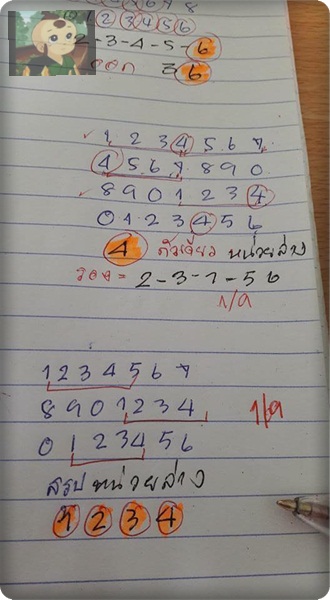 2 3 4 5 6
2-3-4-5-6
ออก 36
1 2 3 4 5 6 7
4 5 6 7 8 9 0
8 9 0 1 2 3 4
0 1 2 3 4 5 6
4 ตัวเดียว หน่วยล่าง
รอง = 2-3-1-56
1/9
1 2 3 4 5 6 7
8 9 0 1 2 3 4 1/9
0 1 2 3 4 5 6
สรุปหน่วยล่าง
1 2 3 4